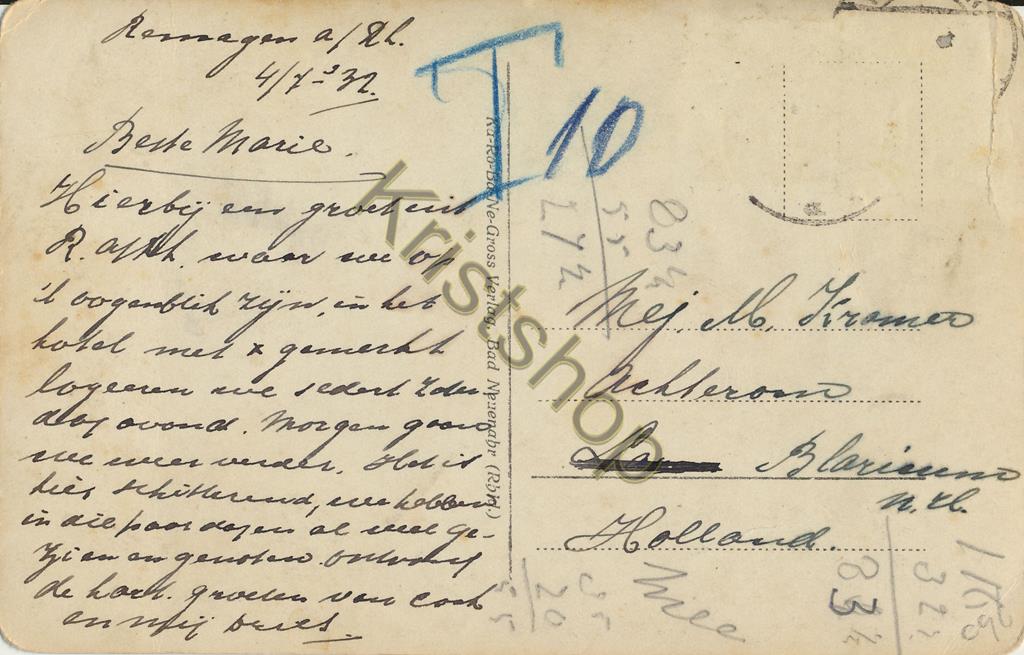 Remagen a/Rh.
4/7-'32.
Beste Marie.
Hierbij een groet uit
R. a/Rh. waar we op
't oogenblik zijn, in het
hotel met x gemerkt
logeeren we sedert Zater
dag avond. Morgen gaan
we weer verder. Het is
hier schitterend, we hebben
in die paar dagen al veel ge-
zien en genoten. ontvang
de hart. groeten van
en mij
T 10
Ka-Ro-Bo-Ne-Gross Verlag, Bad Neuenahr (Rhld.)
Kristshop
83 ½
55
27 ½
Mej. M. Kramer
Achterom
Blaricum
N.H.
Holland.
20
55
83 ½
32 ½